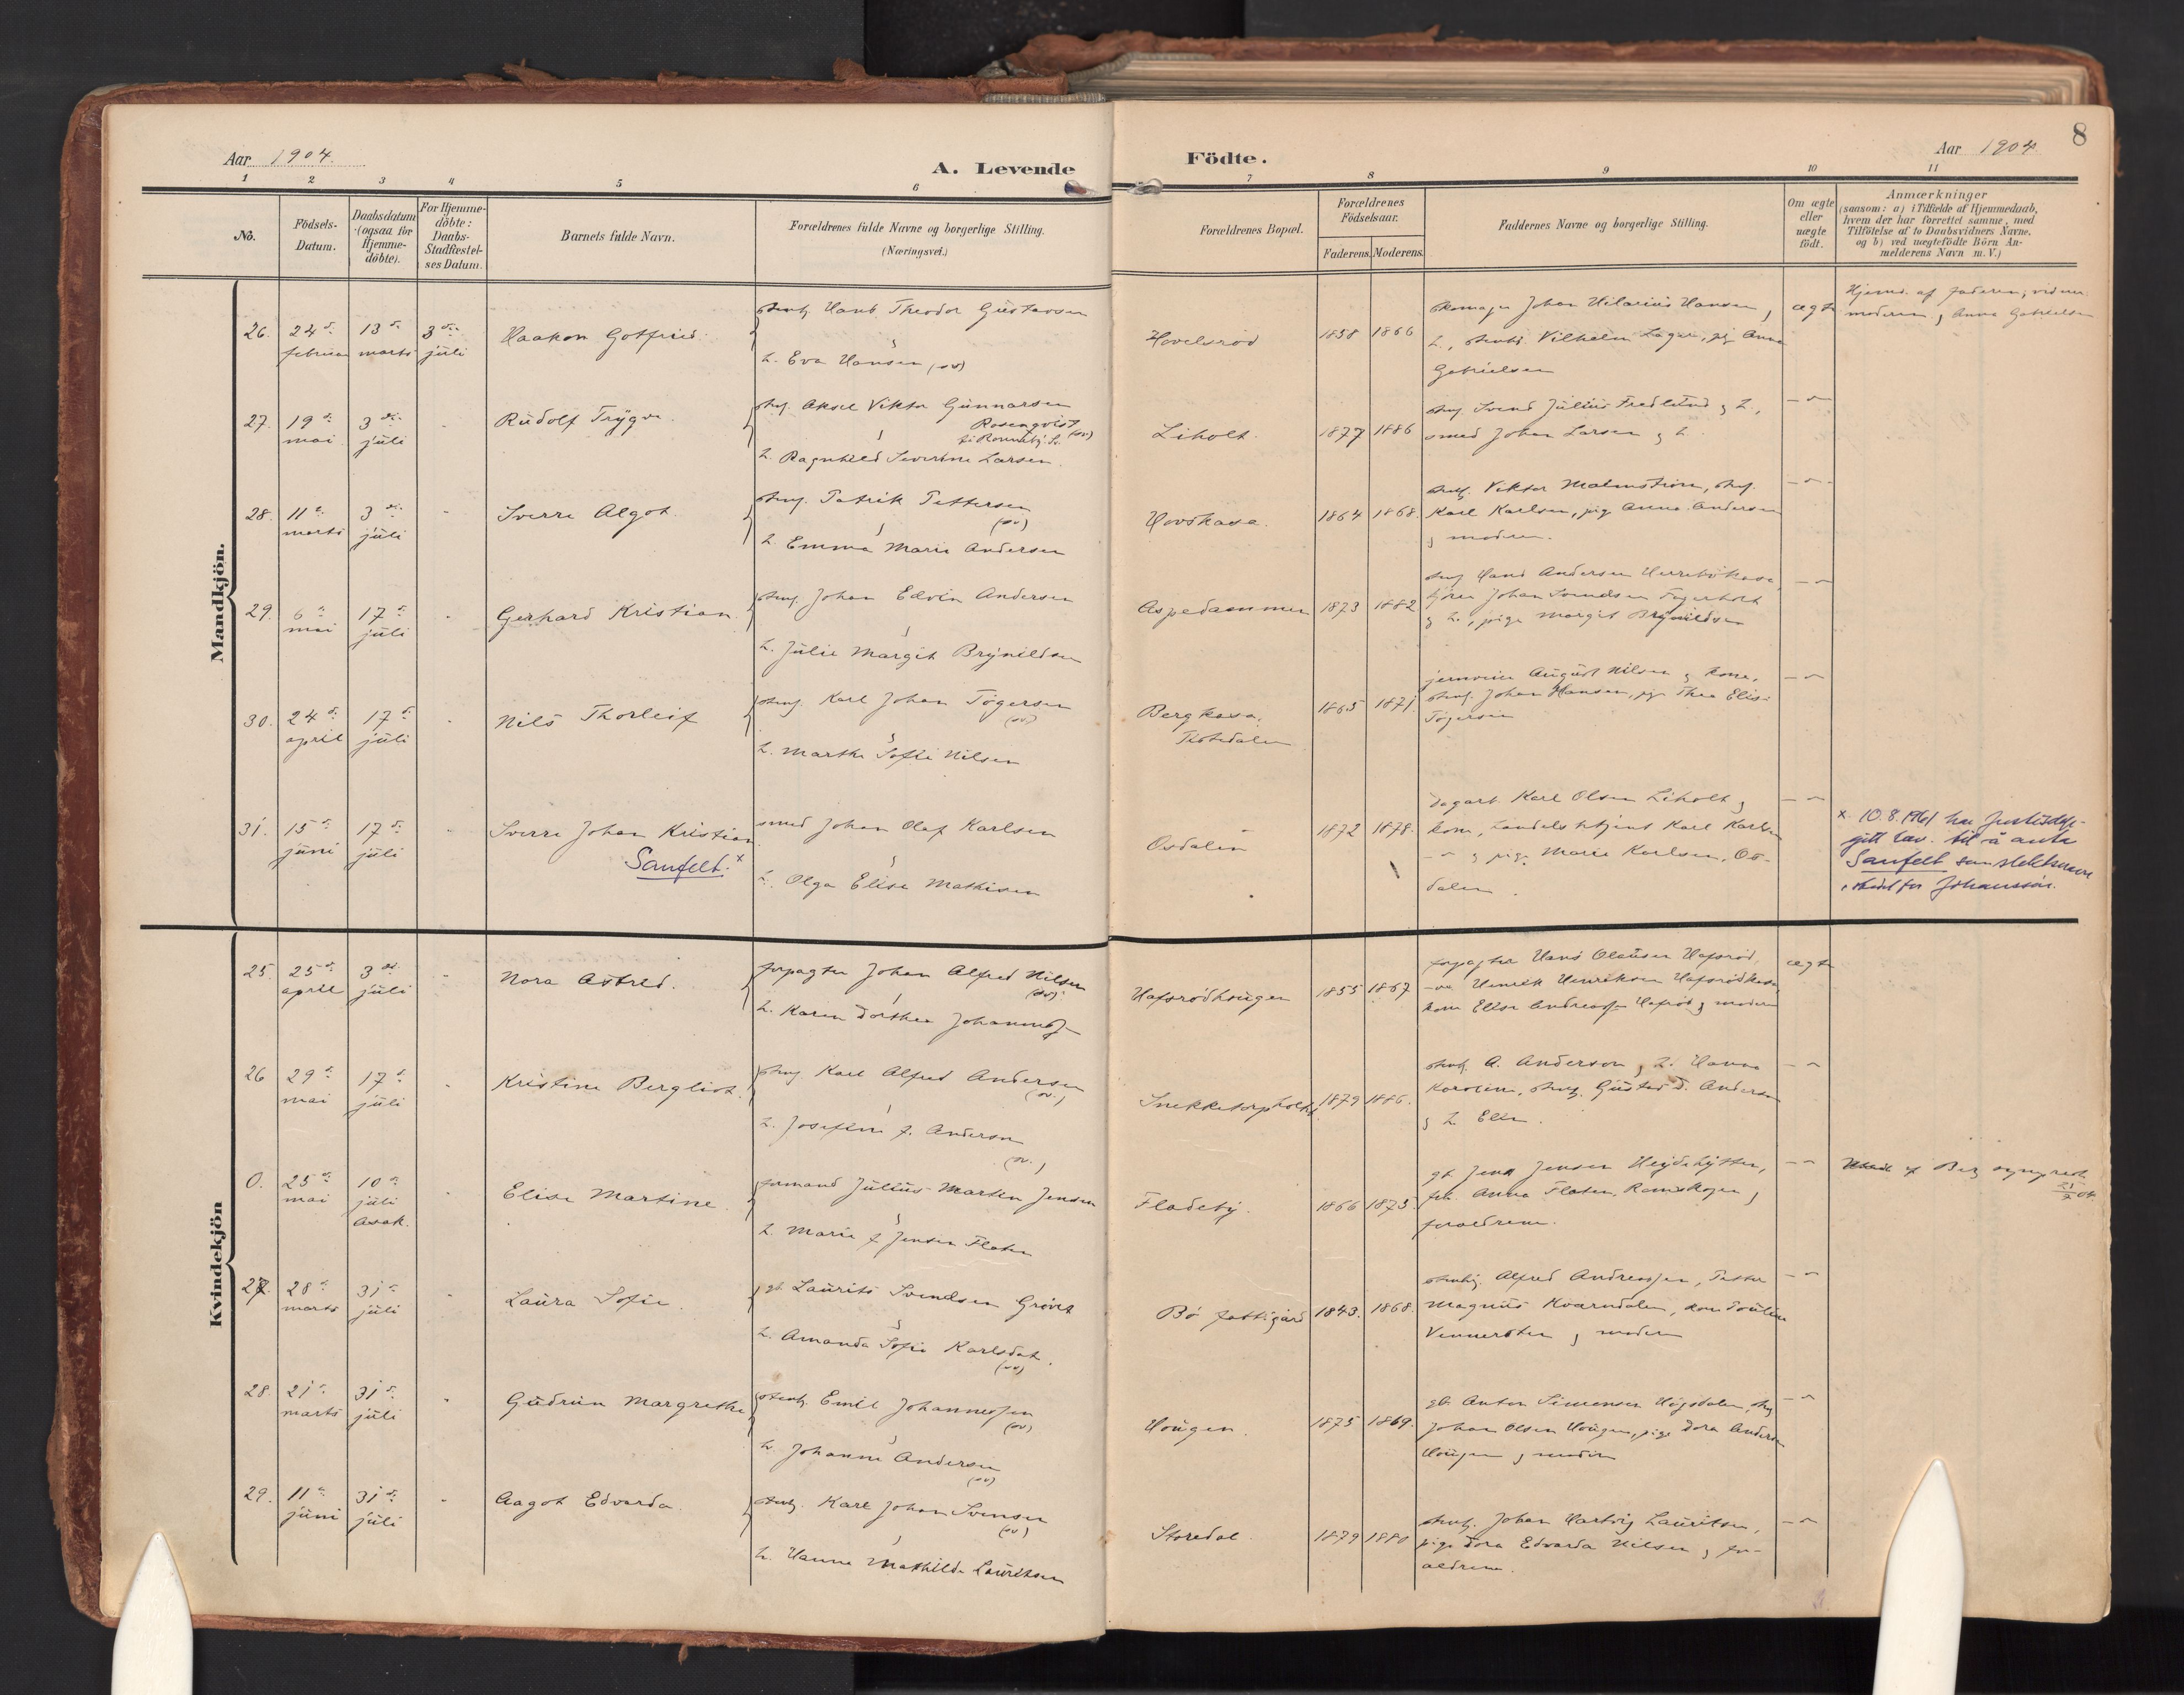 8
Aar 1904.
A. Levende
Födte.
Aar 1904
1 2 3 4 5 6 7 8 9 10 11
No.
Födsels-
Datum.
Daabsdatum
(ogsaa for
Hjemme-
döbte).
For Hjemme-
döbte:
Daabs-
Stadfæstel-
ses Datum.
Barnets fulde Navn.
Forældrenes fulde Navne og borgerlige Stilling.
(Næringsvei.)
Forældrenes Bopæl.
Forældrenes
Födselsaar.
Faderens. Moderens.
Faddernes Navne og borgerlige Stilling.
Om ægte
eller
uægte
födt.
Anmærkninger
(saasom: a) i Tilfælde af Hjemmedaab,
hvem der har forrettet samme, med
Tilföielse af to Daabsvidners Navne.
og b) ved uægtefödte Börn An-
melderens Navn m. V.)
Mandkjön.
26. 24de februar 13de marts 3die juli
Haakon Gotfried
Hans Theodor Gustavsen
h. Eva Hansen (sv)
Hovelsröd
1858 1866
skomager Johan Hilarius Hansen,
h., Vilhelm Lager, pig Anna
Gabrielsen
ægte
Hjemd. af faderen, vidner
moderen, Anna Gabrielsen
27. 19de mai 3die juli
Rudolf Trygve
Aksel Viktor Gunnarsen
Rosenqvist (sv)
h. Ragnhild Severine Larsen.
Liholt
1877 1886
Svend Julius Fredlund & h.,
smed Johan Larsen & h.
28. 11te marts 3die juli
Sverre Algot
Patrik Pettersen
(sv)
h. Emma Marie Andersen
Hovskasa.
1864 1868.
Viktor Malmström,
Karl Karlsen, pig Anna Andersen
& moderen.
29. 6te mai 17de juli
Gerhard Kristian
Johan Edvin Andersen
h. Julie Margit Brynildsen
Aspedammen
1873 1882
Hans Andersen
Johan Svendsen Fagerholt
& h., pige Margit Brynildsen
30. 24de april 17de juli
Nils Thorleif
Karl Johan Tögersen
(sv)
h. Marthe Sofie Nilsen
Bergkasa,
Tistedalen
1865 1871.
August Nilsen & kone,
Johan Hansen, pige Thea Elise
Tögersen
31. 15de juni 17de juli
Sverre Johan Kristian
Sanfelt x
smed Johan Olaf Karlsen
h. Olga Elise Mathisen
Osdalen
1872 1878.
dagarb. Karl Olsen Liholt &
kone, handelsbetjent Karl Karlsen
& pige Marie Karlsen, Os-
dalen.
x 10.8.1961 har Justisdep.
gitt lov. til å anta
Sanfelt som slektsnavn
i stedet for Johanssön.
Kvindekjön
25. 25de april 3die juli
Nora Astrid.
forpagter Johan Alfred Nilsen
(sv).
h. Karen Dorthea Johannesen
Hafsrödhaugen
1855 1867
forpagter Hans Olausen Hafsröd,
Henrik Henriksen Hafsrödkasa
kone Elise Andreassen Hafsröd & moderen
ægte
26 29de mai 17de juli
Kristine Bergliot.
Karl Alfred Andersen
(sv.)
h. Josefine f. Anderson
(sv.)
Snekketorpholtet
1879 1886.
A. Anderson & h. Hanna
Karoline, Gustav D. Anderson
& h. Ellen.
0. 25de mai 10de juli
Asak.
Elise Martine.
formand Julius Martin Jensen
h. Marie f. Jensen Floten
Fladeby.
1866 1875.
gb. Jens Jensen Heydehytten,
frk. Anna Floten, Romskogen &
forældrene.
27. 28de marts 31te juli
Laura Sofie.
gb. Laurits Svendsen Grövet
h. Amanda Sofie Karlsdat.
(sv)
Bö fattigård
1843. 1868.
Alfred Andreassen, Petter
Magnus Kvarndalen, kone Pauline
Vennersten & moderen
28. 21de marts 31te juli
Gudrun Margrethe
Emil Johannessen
(sv)
h. Johanne Andersen
(sv)
Haugen.
1875 1869.
gb. Anton Simensen Högsdalen,
Johan Olsen Haugen, pige Dora Andersen
Haugen & moderen
29. 11te juni 31te juli
Aagot Edvarda.
Karl Johan Svensen
(sv)
h. Hanna Mathilde Lauritsen
Storedal
1879 1880
Johan Hartvig Lauritsen,
pige Dora Edvarda Nilsen & for-
ældrene.